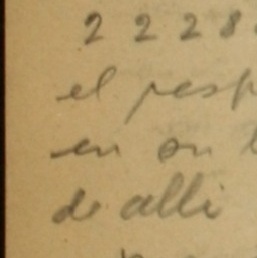 2 2 2 8
el resp
en su
de alli